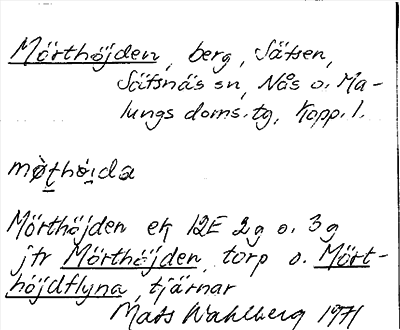 Mörthöjden, berg, Säfsen,
Säfsnäs sn, Nås o. Ma-
lungs doms.tg, Kopp. l.
mø̀t̲hȯi̲da
Mörthöjden ek 12E 2g o. 3g
jfr Mörthöjden, torp o. Mört-
höjdflyna, tjärnar
Mats Wahlberg 1971